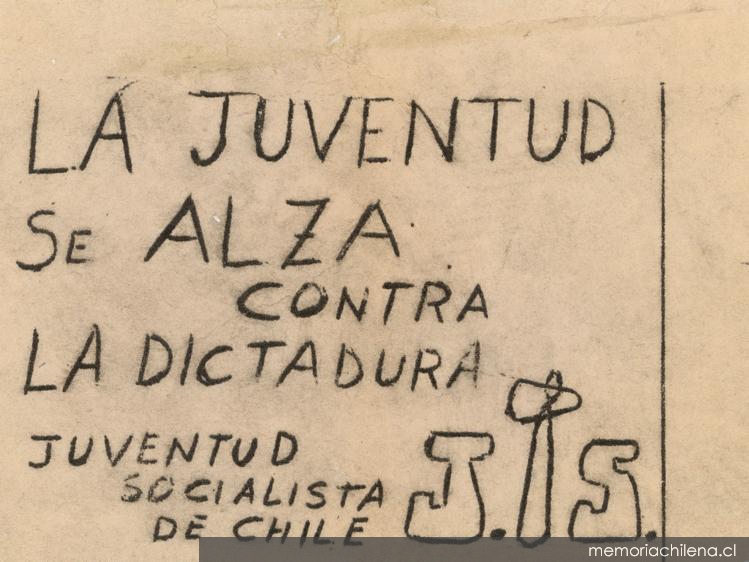 LA JUVENTUD
SE ALZA
CONTRA
LA DICTADURA
JUVENTUD
SOCIALISTA
DE CHILE
J.S.
memoriachilena.cl